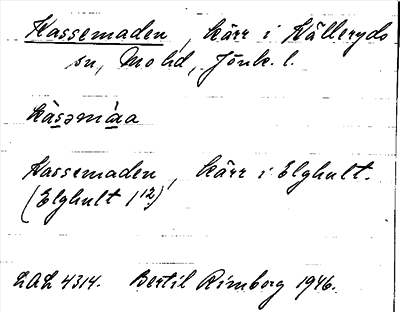 Kassemaden, kärr i Hälleryds
sn, Mo hd, Jönk. l.
kàsəmáa
Kassemaden, kärr i Elghult.
(Elghult 1/12)
LAL 4314. Bertil Rimborg 1946.